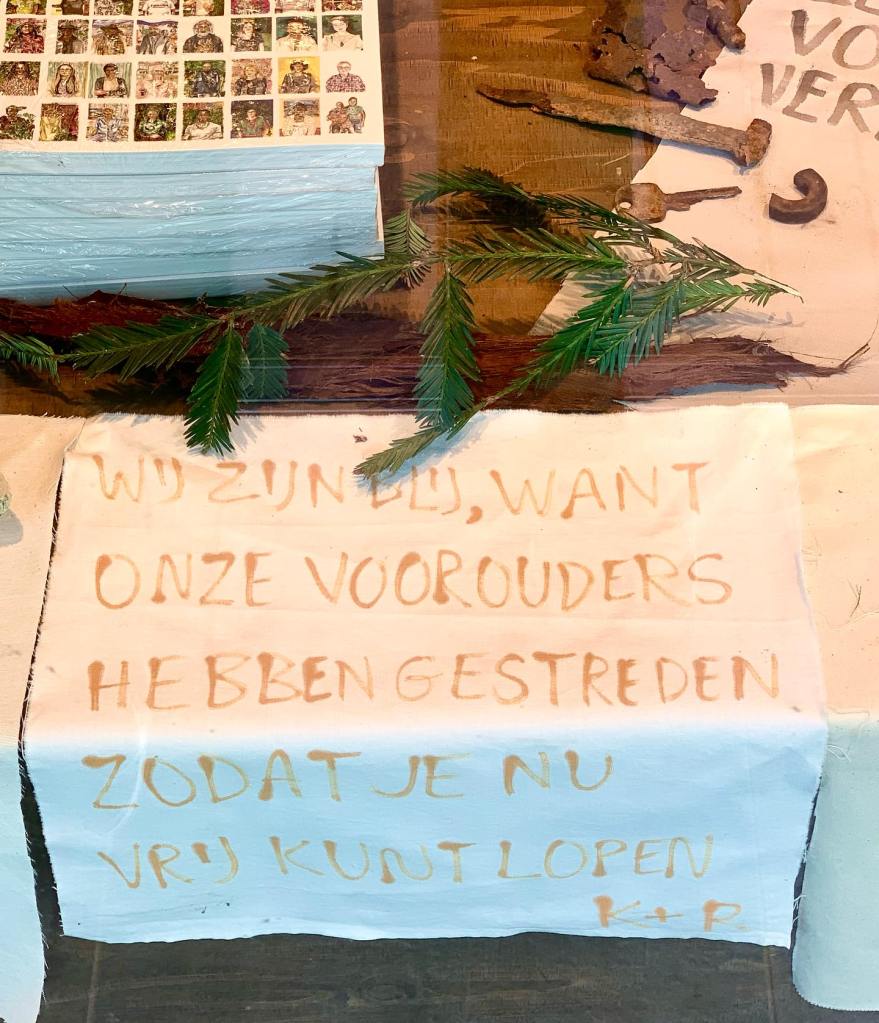 VO
VER
WIJ ZIJN BLIJ, WANT
ONZE VOOROUDERS
HEBBEN GESTREDEN
ZODAT JE NU
VRIJ KUNT LOPEN
K + R